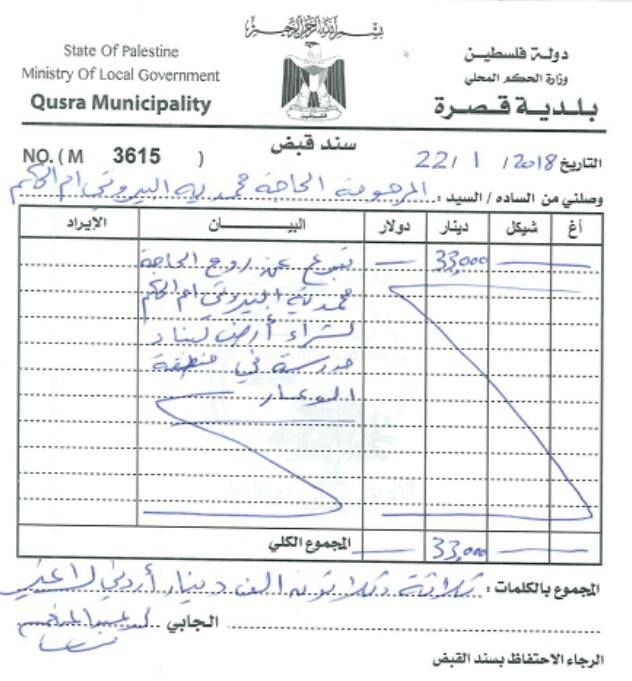 بسم الله الرحمن الرحيم
State Of Palestine
Ministry Of Local Government
Qusra Municipality
دولة فلسطين
وزارة الحكم المحلي
بلدية قصرة
فلسطين
سند قبض
NO. ( M 3615 )
التاريخ 22 / 1 / 2018
وصلني من الساده / السيد : المرحومة الحاجة حمدية البيروتي ام الحكم
أغ شيكل دينار دولار البيـــــان الإيراد
33,000 تبرع عن روح الحاجة
حمدية البيروتي ام الحكم
لشراء أرض لبناء
مدرسة في منطقة
الوعار
33,000 المجموع الكلي
المجموع بالكلمات : ثلاثة وثلاثون الف دينار أردني لا غير
الجابي
الرجاء الاحتفاظ بسند القبض